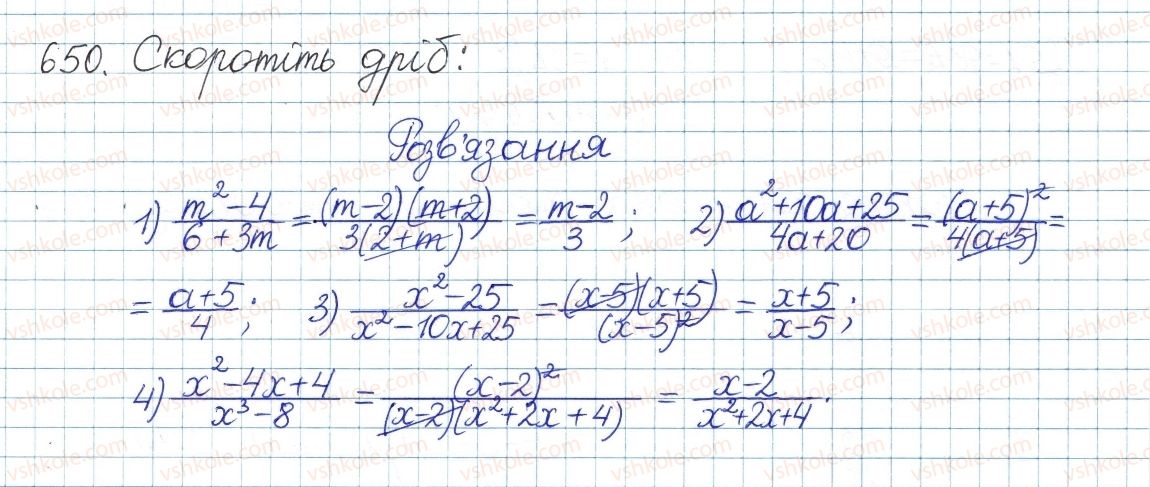 650. Скоротіть дріб:
Розв'язання
1) (m²-4)/(6+3m) = ((m-2)(m+2))/(3(2+m)) = (m-2)/3 ; 2) (a²+10a+25)/(4a+20) = (a+5)²/(4(a+5)) =
= (a+5)/4 ; 3) (x²-25)/(x²-10x+25) = ((x-5)(x+5))/(x-5)² = (x+5)/(x-5) ;
4) (x²-4x+4)/(x³-8) = (x-2)²/((x-2)(x²+2x+4)) = (x-2)/(x²+2x+4) .